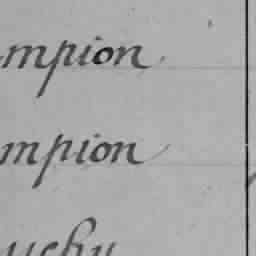 mpion
mpion
uchy